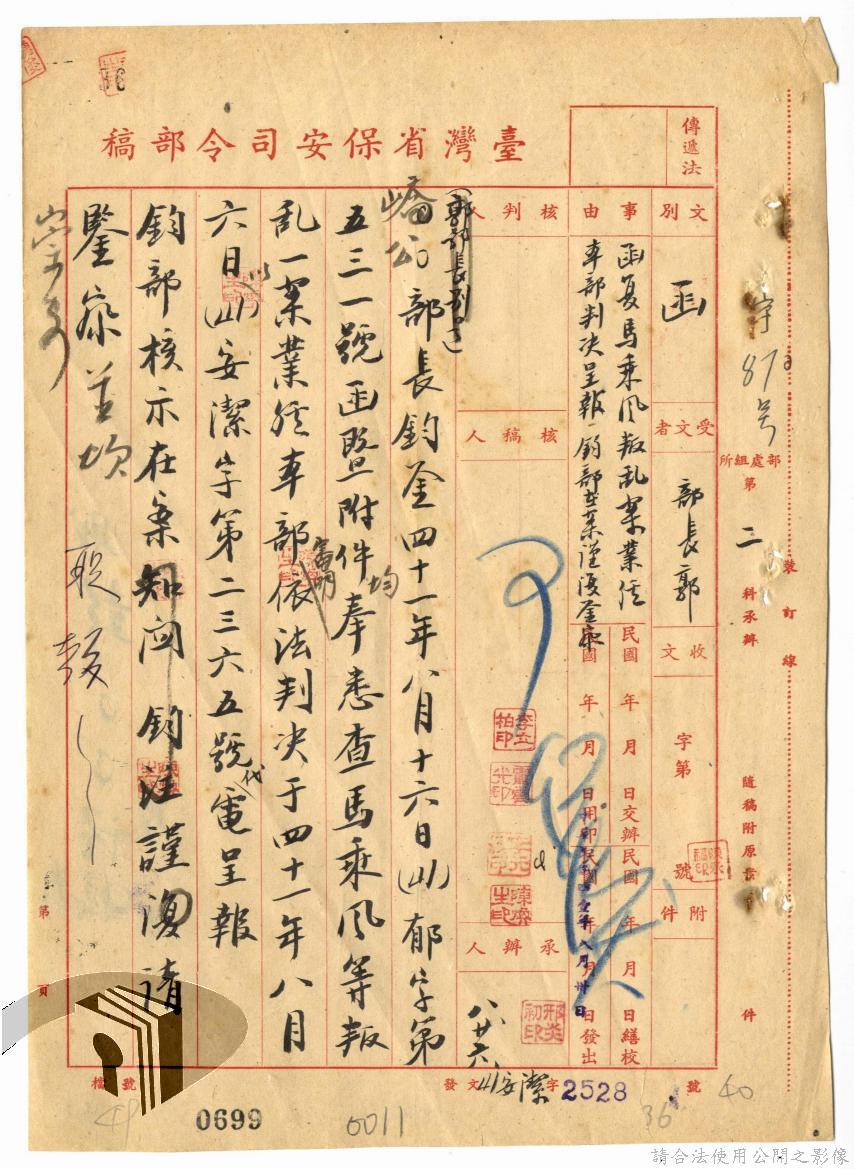 36
臺灣省保安司令部稿
傳遞法
文別
函
受文者
部長郭
收文
字第
號
附件
事由
函复馬乘风叛乱案業经
本部判决呈報 鈞部在案謹復鉴察
民國 年 月 日交辦
民國 年 月 日繕校
民國 年 月 日用印
民國四十壹年八月卅日發出
核判人
核稿人
可
承辦人
八、廿六
李立柏印
陳來生印
邢炎初印
(郭部長別号)
嶠公部長鈞鉴四十一年八月十六日(41)郁字第
五三一號函暨附件均奉悉查馬乘风等叛
乱一案業经本部審明依法判决于四十一年八月
六日以(41)安潔字第二三六五號代電呈報
鈞部核示在案知関 鈞注謹復請
鑒察並頌
崇安
職 彭
字870号
部處組所
第二科承辦
裝訂線
隨稿附原案 件
第 頁
檔號
發文(41)安潔字2528號
0699
0011
36
40
請合法使用公開之影像